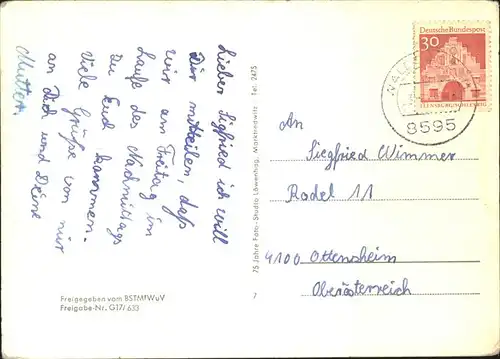 Lieber Sigfried ich will
Dir mitteilen, daß
wir am Freitag im
Laufe des Nachmittags
zu Euch kommen.
Viele Grüße von mir
an Dich und Deine
Mutter.
Freigegeben vom BSTMfWuV
Freigabe-Nr. G17/633
75 Jahre Foto-Studio Löwenhag, Marktredwitz Tel. 2475
7
Deutsche Bundespost
30
FLENSBURG/SCHLESWIG
8595
An
Siegfried Wimmer
Rodel 11
4100 Ottensheim
Oberösterreich